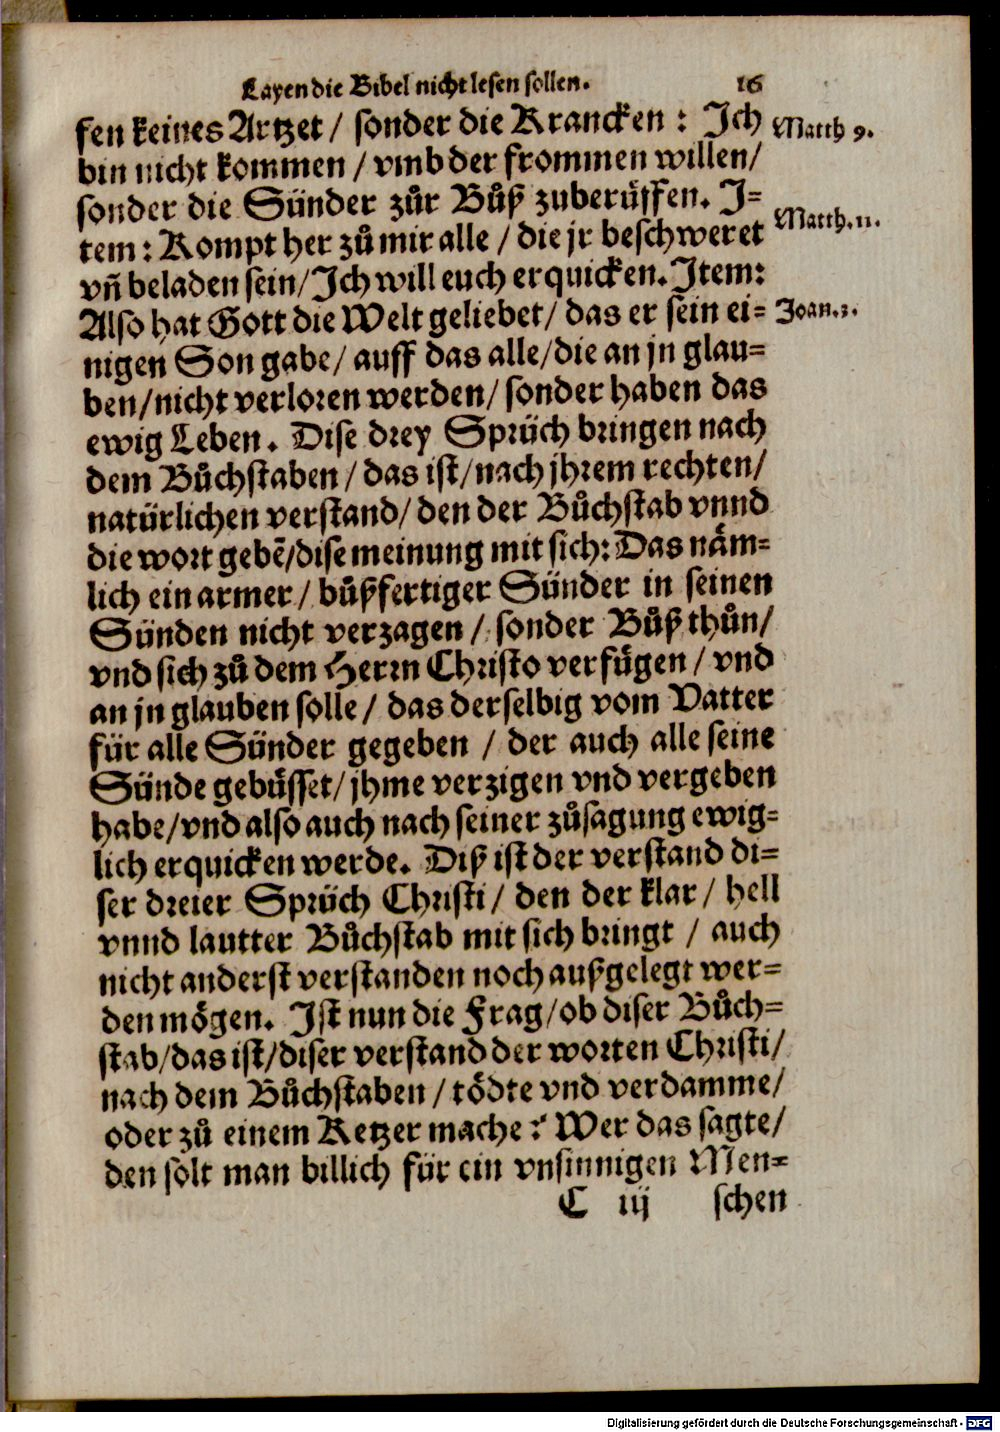 Layen die Bibel nicht lesen sollen. 16
fen keines Artzet / sonder die Krancken : Ich Matth 9.
bin nicht kommen / vmb der frommen willen/
sonder die Sünder zůr Bůß zuberüffen. I=
tem: Kompt her zů mir alle / die jr beschweret Matth. 11.
vñ beladen sein/ Ich will euch erquicken. Item:
Also hat Gott die Welt geliebet/ das er sein ei= Joan. 3.
nigen Son gabe/ auff das alle/die an jn glau=
ben/nicht verloren werden/ sonder haben das
ewig Leben. Dise drey Sprüch bringen nach
dem Bůchstaben / das ist/nach jhrem rechten/
natürlichen verstand/ den der Bůchstab vnnd
die wort gebẽ/dise meinung mit sich: Das näm=
lich ein armer/ bůßfertiger Sünder in seinen
Sünden nicht verzagen / sonder Bůß thůn/
vnd sich zů dem Herrn Christo verfügen / vnd
an jn glauben solle / das derselbig vom Vatter
für alle Sünder gegeben / der auch alle seine
Sünde gebüsset/ jhme verzigen vnd vergeben
habe/vnd also auch nach seiner zůsagung ewig=
lich erquicken werde. Diß ist der verstand di=
ser dreier Sprüch Christi/ den der klar/ hell
vnnd lautter Bůchstab mit sich bringt / auch
nicht anderst verstanden noch außgelegt wer=
den mögen. Ist nun die Frag/ob diser Bůch=
stab/das ist/diser verstand der worten Christi/
nach dem Bůchstaben / tödte vnd verdamme/
oder zů einem Ketzer mache? Wer das sagte/
den solt man billich für ein vnsinnigen Men=
C iij schen
Digitalisierung gefördert durch die Deutsche Forschungsgemeinschaft - DFG